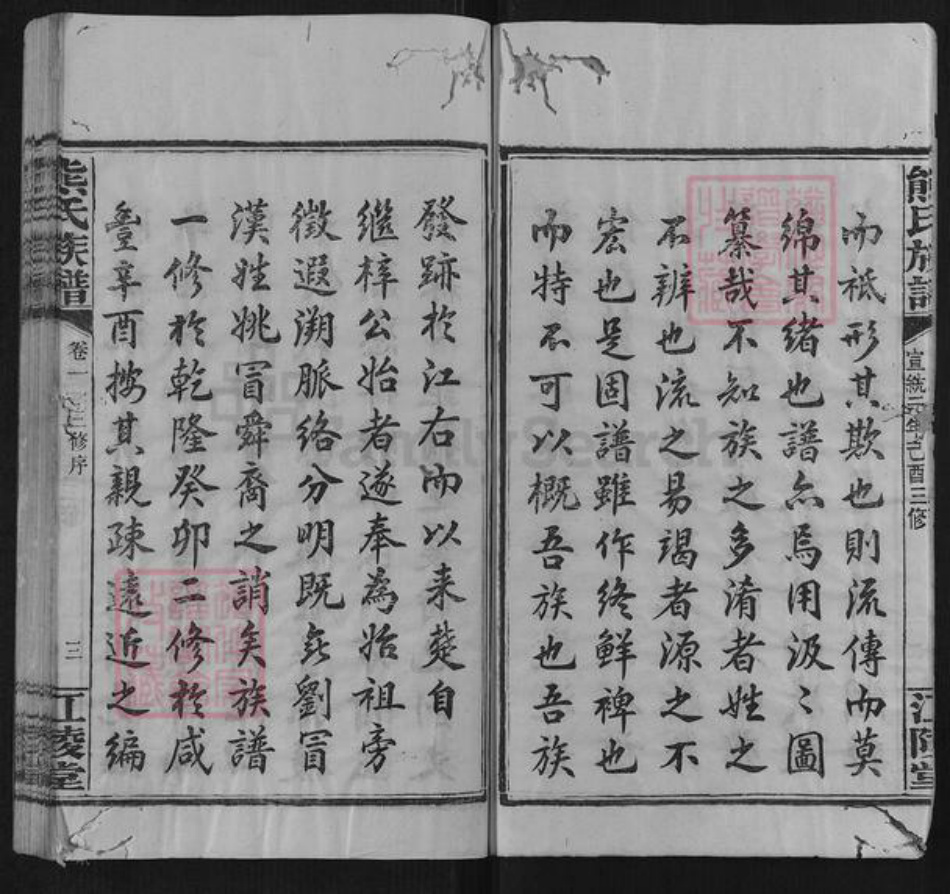 熊氏族譜
宣統元年己酉三修
江陵堂
而祗形其欺也則流傳而莫
綿其緒也譜亦焉用汲〻圖
纂哉不知族之多淆者姓之
不辨也流之易竭者源之不
宏也是固譜雖作終鮮裨也
而特不可以概吾族也吾族
發跡於江右而以来楚自
繼梓公始者遂奉為始祖旁
徵遐溯脈絡分明既無劉冒
漢姓姚冒舜裔之誚矣族譜
一修於乾隆癸卯二修於咸
豐辛酉按其親疎遠近之編
熊氏族譜
卷一
三修序
三
江陵堂
FamilySearch